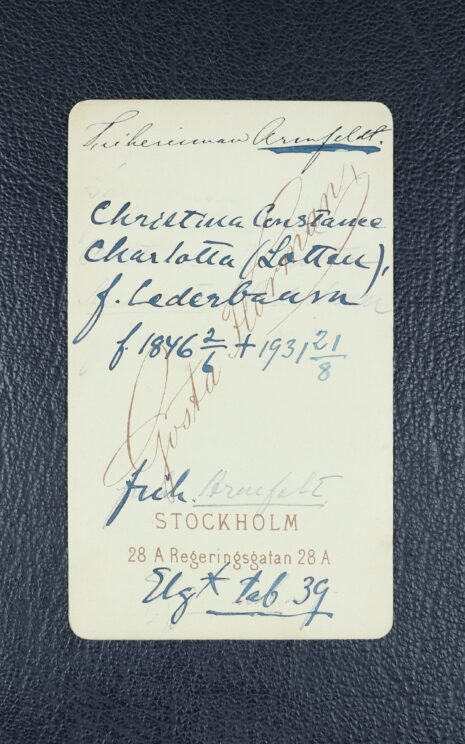 Friherinnan Armfeldt.
Christina Constance
Charlotta (Lotten),
f. Cederbaum
f 1846 2/6 + 1931 21/8
Gösta Florman
frih. Armfelt
STOCKHOLM
28 A Regeringsgatan 28 A
Elg* tab 39